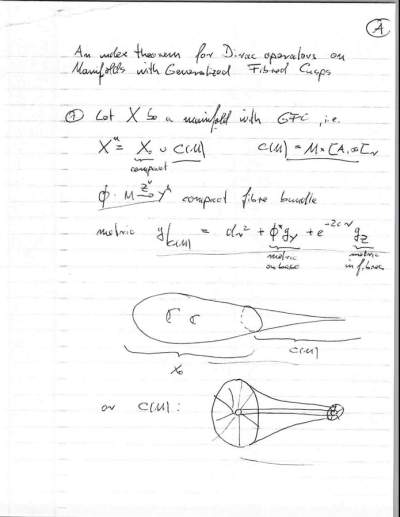 A
An index theorem for Dirac operators on
Manifolds with Generalized Fibred Cusps
Let X be a manifold with GFC, i.e.
X^n = X_0 ∪ C(M)    C(M) = M × [A, ∞[_r
compact
ϕ : M →^{Z^v} Y^h compact fibre bundle
metric g|_{C(M)} = dr² + ϕ*g_Y + e^{-2cr} g_Z
metric on base    metric in fibres
X_0    C(M)
or C(M) :